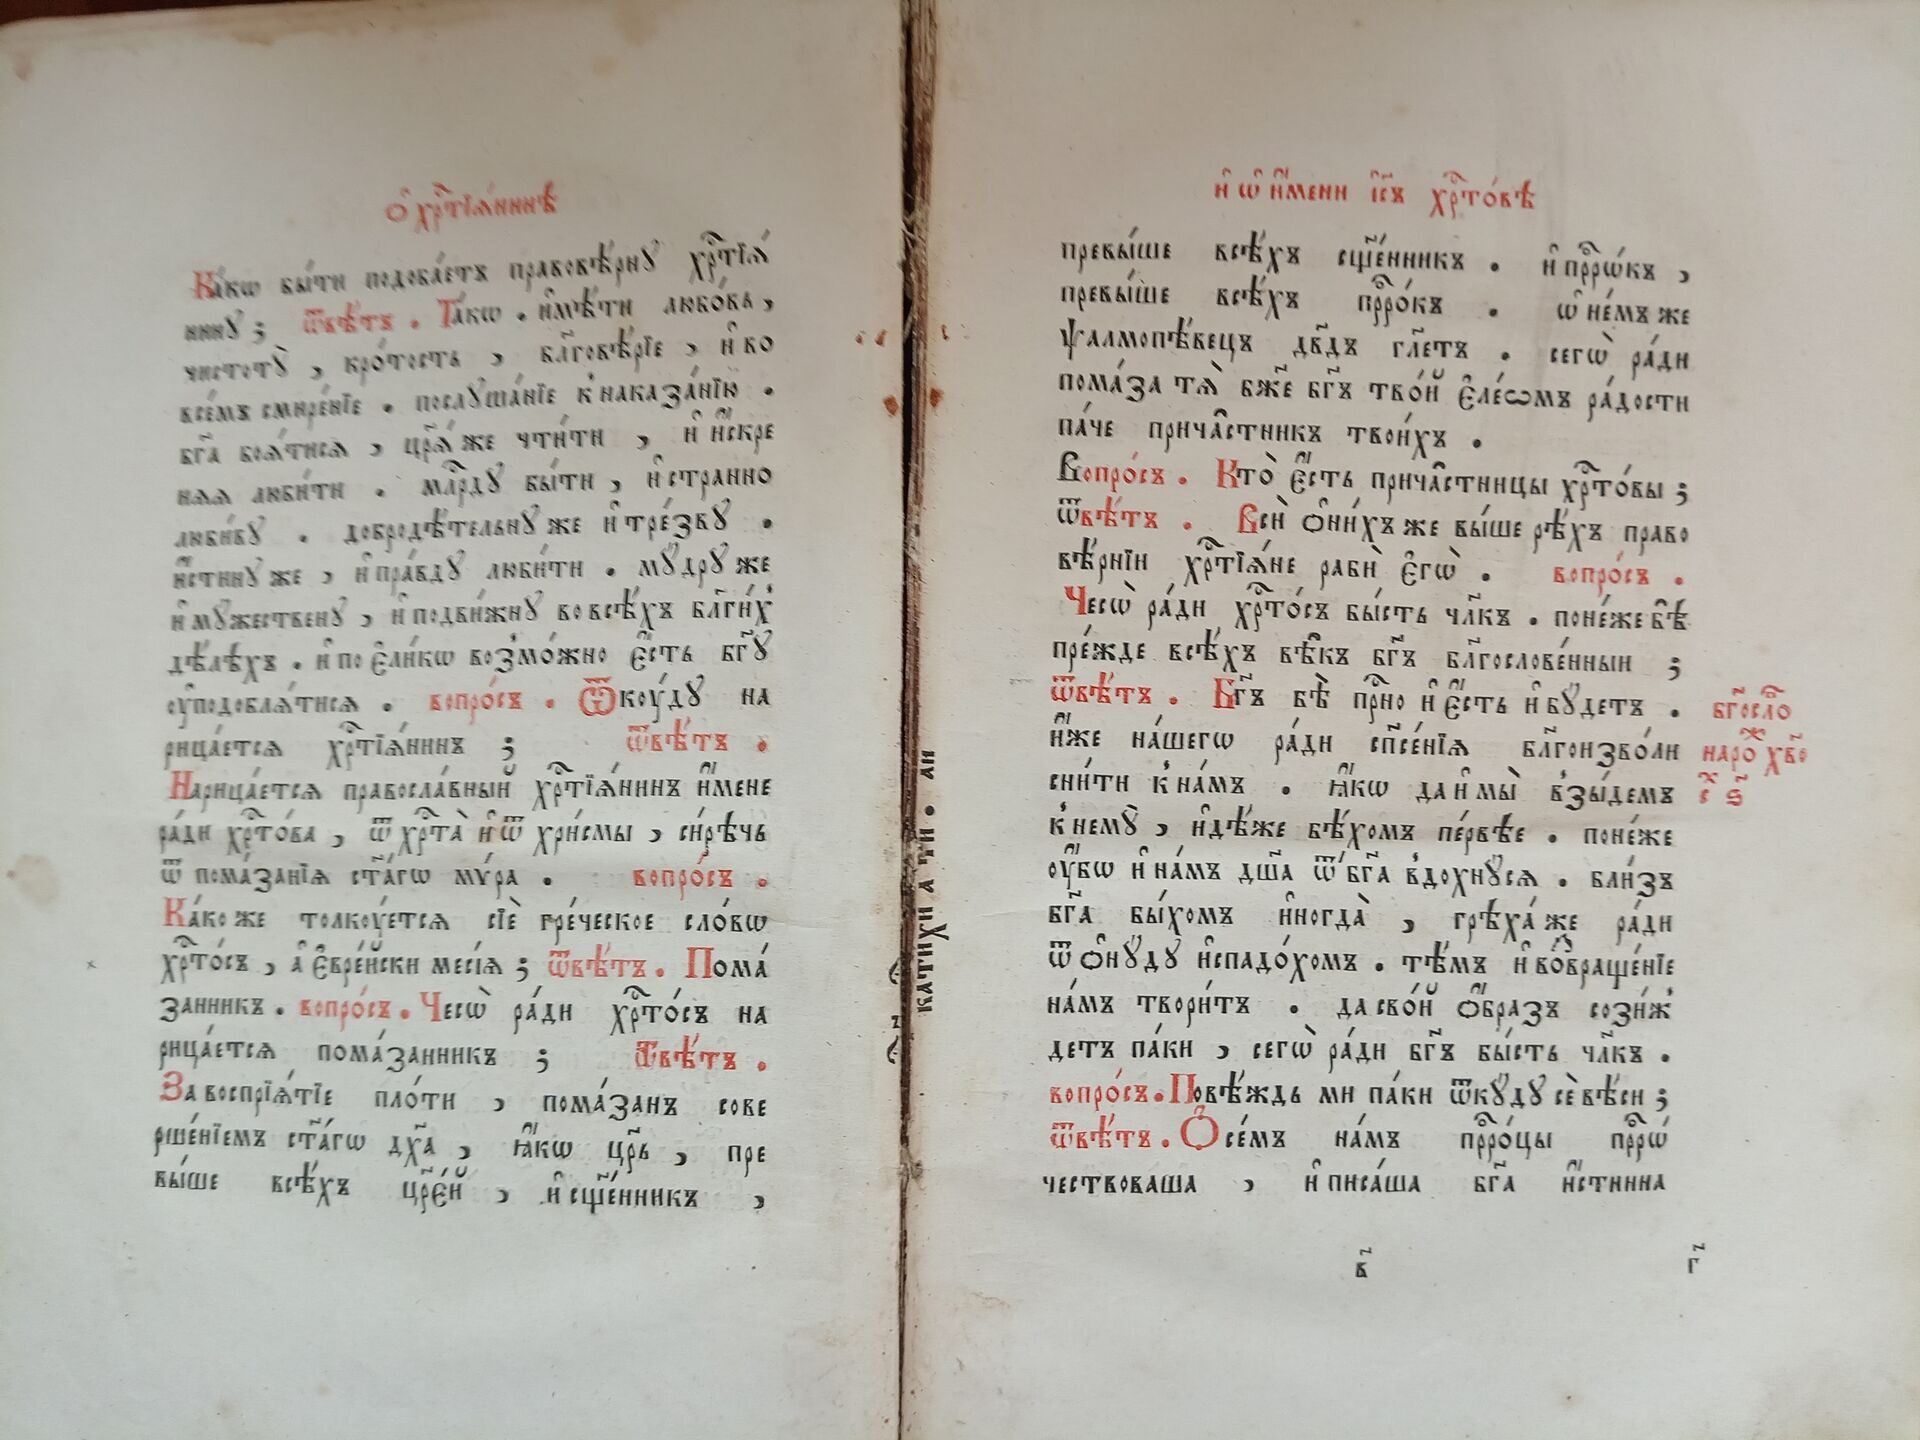 Ѻ҆ хрⷭ҇тїѧ́нинѣ
Ка́кѡ бы́ти подоба́етъ правовѣ́рнꙋ хрⷭ҇тїѧ́
нинꙋ; ѿвѣ́тъ. Та́кѡ. и҆мѣ́ти любо́вь,
чистотꙋ̀, кро́тость, бл҃говѣ́рїе, и҆ во
всѐмъ смире́нїе. послꙋша́нїе к наказа́нїю.
бг҃а боѧ́тисѧ, цр҃ѧ́ же чти́ти, и҆ и҆́скре
нѧѧ люби́ти. млⷭ҇рдꙋ бы́ти, и҆ странно
люби́вꙋ. добродѣ́тельнꙋ же и҆ тре́звꙋ.
и҆́стинꙋ же, и҆ пра́вдꙋ люби́ти. мꙋ́дрꙋ же
и҆ мꙋ́жественꙋ, и҆ подви́жнꙋ во всѣ́хъ бл҃ги́х̾
дѣ́лѣхъ. и҆ по є҆ли́кѡ возмо́жно є҆́сть бг҃ꙋ
оу҆подоблѧ́тисѧ. вопро́съ. Ѿкоу́дꙋ на
рица́етсѧ хрⷭ҇тїѧ́нинъ; ѿвѣ́тъ.
Нарица́етсѧ правосла́вный хрⷭ҇тїѧ́нинъ и҆́мене
ра́ди хрⷭ҇то́ва, ѿ хрⷭ҇та̀ и҆ ѿ хри́смы, си́рѣчь
ѿ пома́занїѧ ст҃а́гѡ мѵ́ра. вопро́съ.
Ка́ко же толкоу́етсѧ сїѐ гре́ческое сло́вѡ
хрⷭ҇то́съ, а҆ є҆вре́йски месі́ѧ; ѿвѣ́тъ. Пома́
занникъ. вопро́съ. Чесѡ̀ ра́ди хрⷭ҇то́съ на
рица́етсѧ пома́занникъ; ѿвѣ́тъ.
За воспрїѧ́тїе пло́ти, пома́занъ сове
рше́нїемъ ст҃а́гѡ дх҃а, ꙗ҆́кѡ цр҃ь, пре
вы́ше всѣ́хъ цр҃е́й, и҆ сщ҃е́нникъ,
и҆ ѡ҆ и҆́мени і҆с҃ъ хрⷭ҇то́вѣ
превы́ше всѣ́хъ сщ҃е́нникъ. и҆ прⷪ҇рѡ́къ,
превы́ше всѣ́хъ прⷪ҇ро́къ. ѡ҆ не́мъ же
ѱалмопѣ́вецъ дв҃дъ гл҃етъ. сегѡ̀ ра́ди
пома́за тѧ̀ бж҃е бг҃ъ тво́й є҆ле́ѡмъ ра́дости
па́че прича́стникъ твои́хъ.
Вопро́съ. Кто̀ є҆́сть прича́стницы хрⷭ҇то́вы;
ѿвѣ́тъ. Всѝ ѻ҆ни́хъ же вы́ше рѣ́хъ право
вѣ́рнїи хрⷭ҇тїѧ́не рабѝ є҆гѡ̀. вопро́съ.
Чесѡ̀ ра́ди хрⷭ҇то́съ бы́сть чл҃къ. поне́же бѣ̀
пре́жде всѣ́хъ вѣ́къ бг҃ъ бл҃гослове́нныи;
ѿвѣ́тъ. Бг҃ъ бѣ̀ прⷭ҇но и҆ є҆́сть и҆ бꙋ́детъ.
и҆́же на́шегѡ ра́ди сп҃се́нїѧ бл҃гоизво́ли
сни́ти к на́мъ. ꙗ҆́кѡ да и҆ мы̀ взы́демъ
к немꙋ̀, и҆дѣ́же бѣ́хомъ пе́рвѣе. поне́же
оу҆́бѡ и҆ на́мъ дш҃а ѿ бг҃а вдохнꙋ́сѧ. бли́зъ
бг҃а бы́хомъ и҆ногда̀, грѣха́ же ра́ди
ѿ ѻ҆нꙋ́дꙋ и҆спадо́хомъ. тѣ́мъ и҆ воⷥ҇враще́нїе
на́мъ твори́тъ. да сво́й ѻ҆́бразъ сози́ж̾
детъ па́ки, сегѡ̀ ра́ди бг҃ъ бы́сть чл҃къ.
вопро́съ. Повѣ́ждь ми па́ки ѿкꙋ́дꙋ сѐ вѣ́си;
ѿвѣ́тъ. Ѻ҆ се́мъ на́мъ прⷪ҇ро́цы прⷪ҇рѡ́
чествоваша, и҆ писа́ша бг҃а и҆́стинна
бг҃осло
нарⷤо́ хв҃о
сⷯ ѕ҃
в҃
г҃